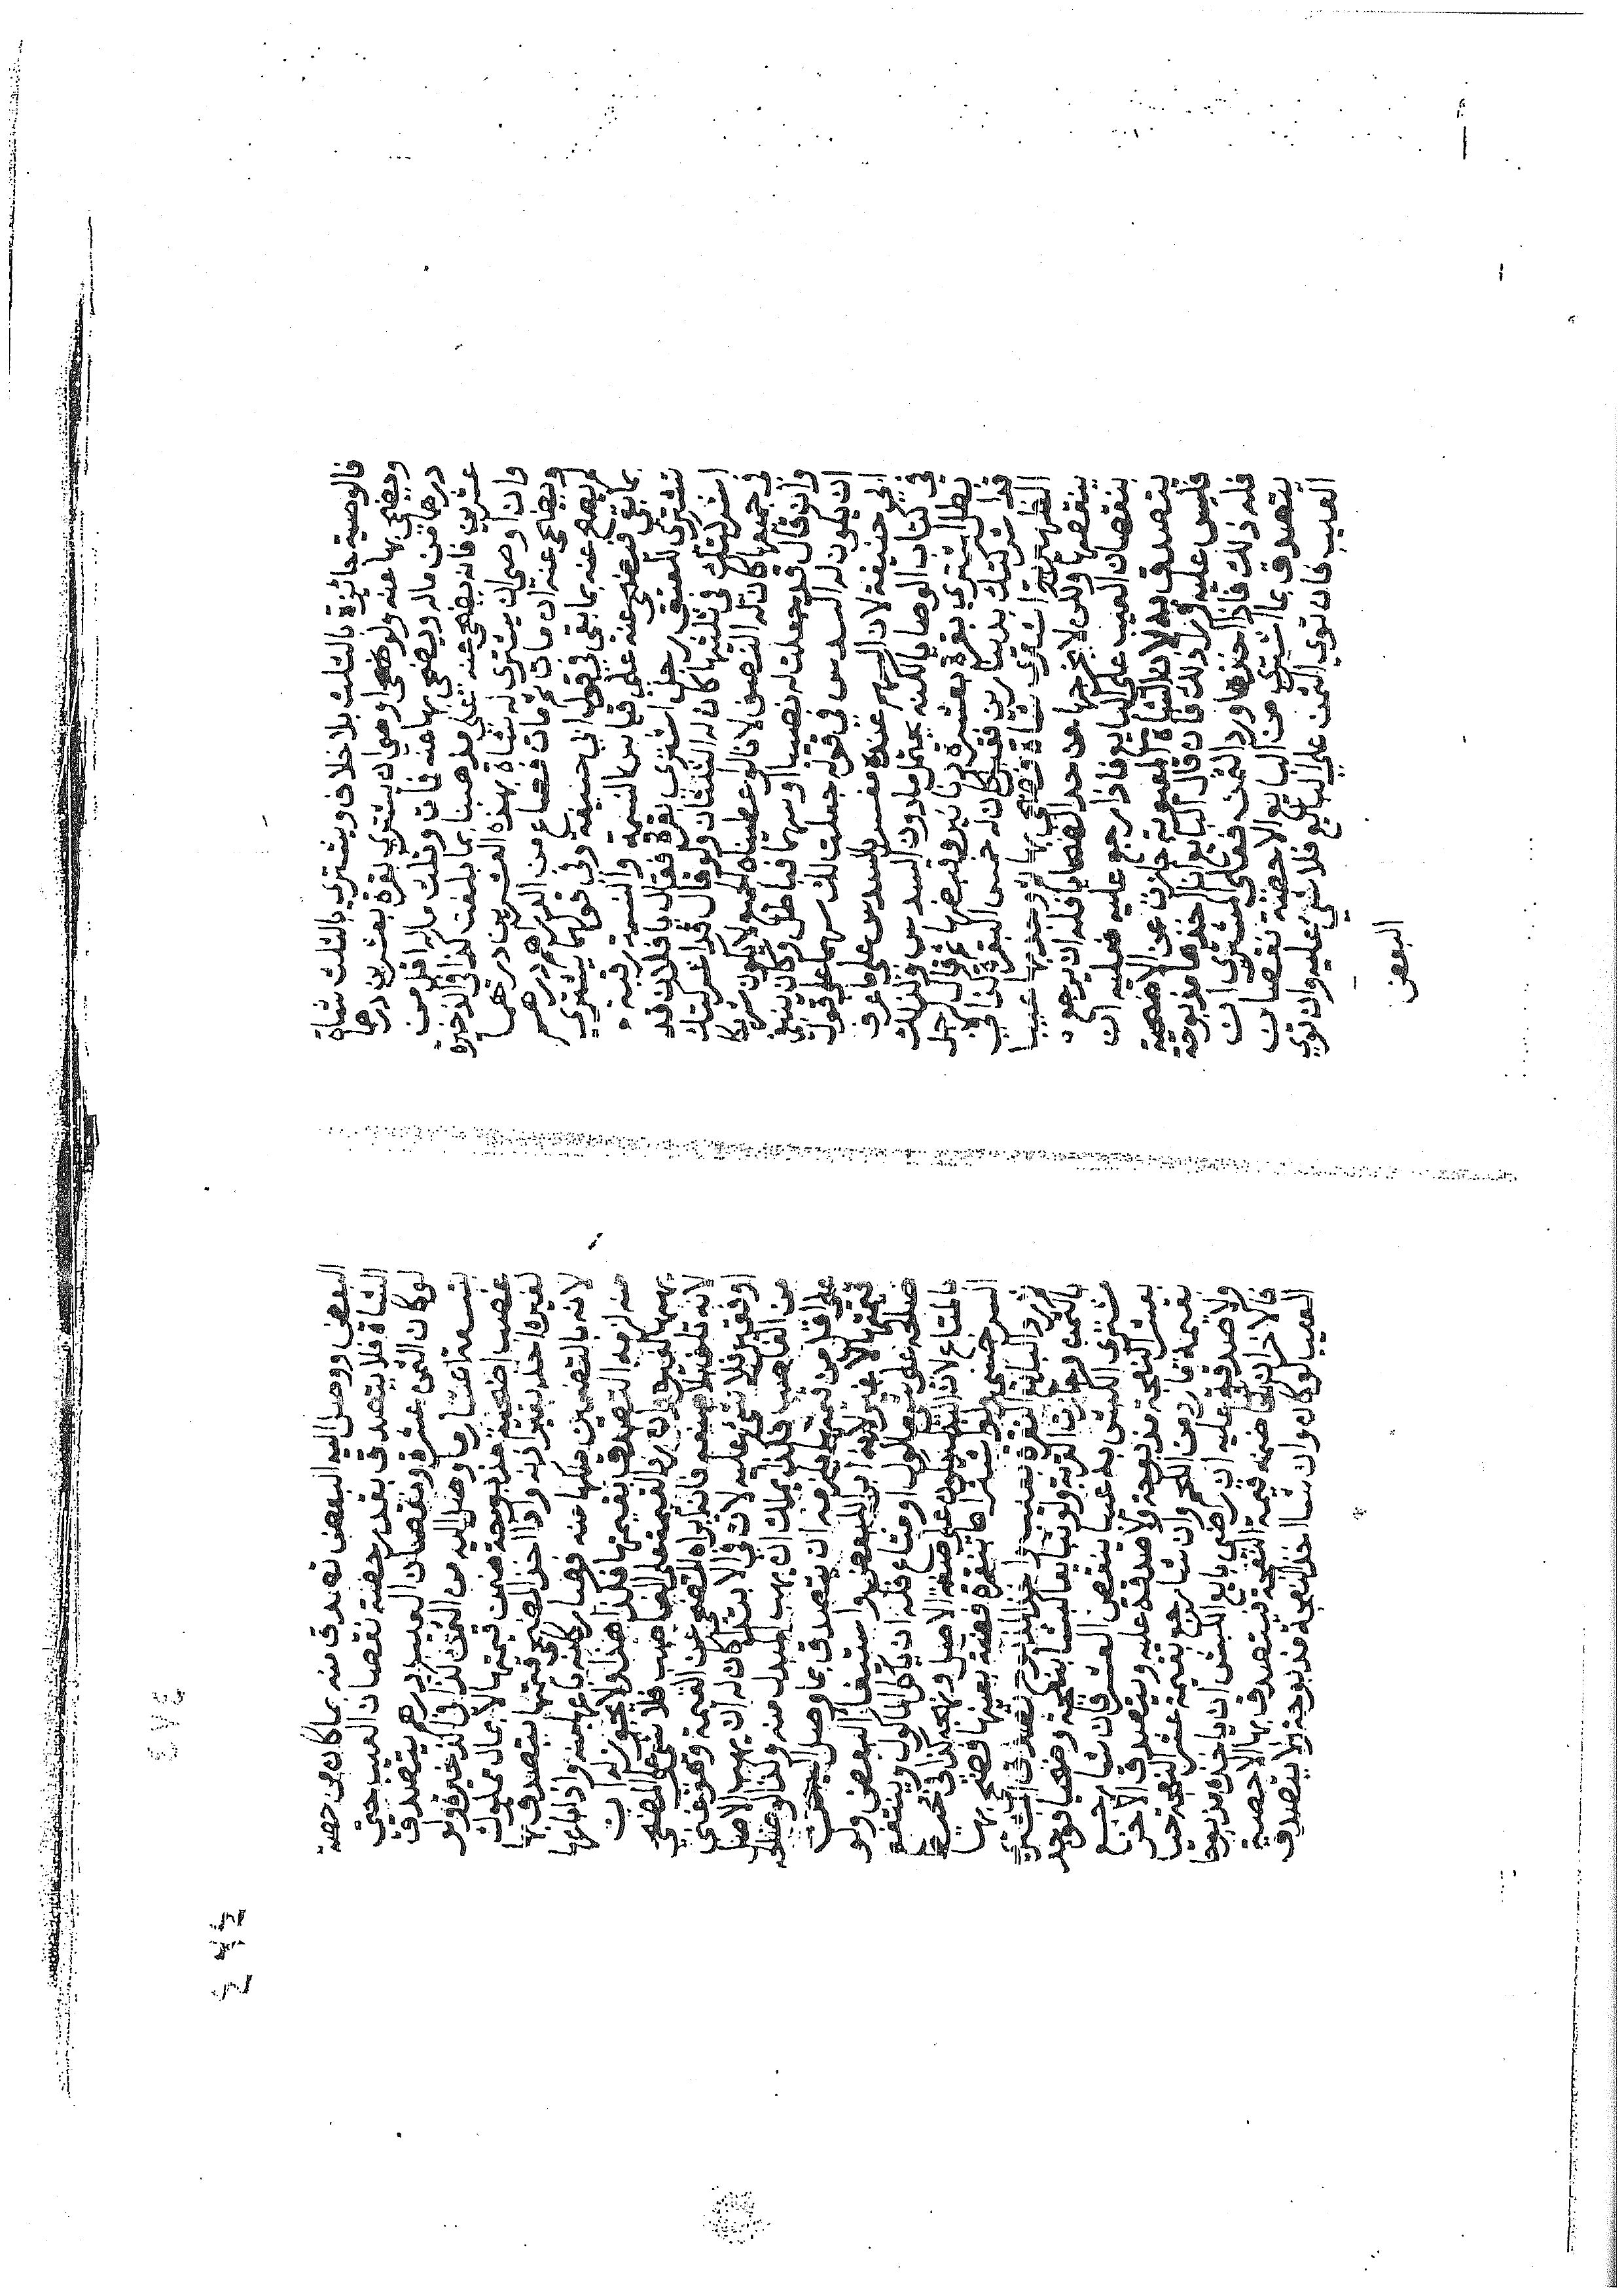 فالوصية جائزة بالثلث بلا خلاف ويشتري بالثلث شاة
ويضحي بها عنه ولو اوصي ان يشتري بقرة بعشرين درهما
درهما من ماله ويضحي بها عنه فمات وثلث ماله اقل من
عشرين فانه يضحي عنه علي مذهبنا بما بلغت كذا في الذخيرة
وان اوصي ان يشتري له شاة بهذه العشرين درهما
ويضحي عنه ان مات ثم مات فضاع من الدراهم درهم
لم يضح عنه بما بقي في قول ابي حنيفة وفي قولهما يشتري
بما بقي فيضحي عنه علي قياس النسمة والنسمة رقبة
تشتري للعتق رجل اشتري بقرة فقال يا فلان قد
اشركتك في ثلثها كان له الثلثان ولو قال قد اشركتك
في جميعها كان له النصف لانا لو اعطيناه الجميع لا يكون شريكا
وان قال قد جعلت له نصيبا او سهما فباطل وكان ينبغي
ان يكون له السدس في قوله جعلت لك سهما علي قول
ابي حنيفة لان السهم عنده مفسر بالسدس علي ما عرف
في كتاب الوصايا لكنه يحتمل ما دون السدس ولذلك
بطل اشتري بقرة بعشرة دنانير وقبضها ثم قال لرجل
قد اشركتك بدينارين فقبل كان له خمس البقرة كذا في
الظهيرية اشتري شاة فضحي بها ثم وجد بها عيبا
ينقصها ولكن لا يخرجها من حد الضحايا فله ان يرجع
بنقصان العيب علي البايع فاذا رجع عليه فعليه ان
يتصدق به لان الشاة المعيوبة جازت عن الاضحية
فليس عليه ذلك فان قال البايع انا اخذها مذبوحة
فله ذلك فاذا اخذها ورد الثمن فعلي المشتري ان
يتصدق بما اشتري من البايع الا حصة نقصان
العيب فان توي الثمن علي البايع فلا شي عليه وان توي
البعض
البعض ووصل اليه البعض تصدق منه بما كان من حصة
الشاة فلا يتصدق بقدر حصة نقصان العيب حتي
لو كان الثمن عشرة ونقصان العيب درهم يتصدق
بتسعة اعشار ما وصل اليه من الثمن كذا في الذخيرة ولو
غصب اضحية مذبوحة ضمن قيمتها لانها مال مملوك
لغيره اخذه بغير اذنه واذا اخذ المضحي قيمتها يتصدق بها
لانه بالتضمين ملكها منه فصار كانه باعها منه واذا باعها
منه لزمه التصدق بقيمتها فكذا هذا ولا يجوز له ان
يهبها لغيره وان ابرأه القيمة علي الغاصب فلا شي علي المضحي
لانه تلف بلا صنعه فانه ابراه المضحي عن القيمة وهو غني
او فقير فلا شي عليه لان في الابتدا كان له ان يهب الاصل
من الغاصب فكذا يملك ان يهب البدل منه ولذا لو صالحه
علي اقل من قيمتها يلزمه ان يتصدق بما وصل اليه من
قيمتها لا غير لانه ابرا البعض واستيفا البعض ولو
صالحه علي ماكول او متاع فله ان ياكل الماكول وينتفع
بالمتاع لان البدل يكون علي صفة الاصل
السرخسي لو اشتراها ببقرة فضة بعينها فضحي بها
ثم رد البايع البقرة بعيب واخذ المذبوح تصدق المشتري
بالثمن وجازت القربة ولو تبايعا كبشا بنعجة وضحيا فوجد
مشتري الكبش به عيبا ينقص العشر فان شا رجع
بعشر النعجة مذبوحة ولا صدقة عليه ويتصدق الاخر
بقيمة ما رد من اللحم وان شا رجع بقيمة عشر النعجة حيا
ولا صدقة عليه ان رضي بايع الكبش ان ياخذه مذبوحا
فالاخر ان شا ضمنه قيمة النعجة فيتصدق بها الا حصة
العيب لو كان وان شا اخذ النعجة مذبوحة ولا يتصدق